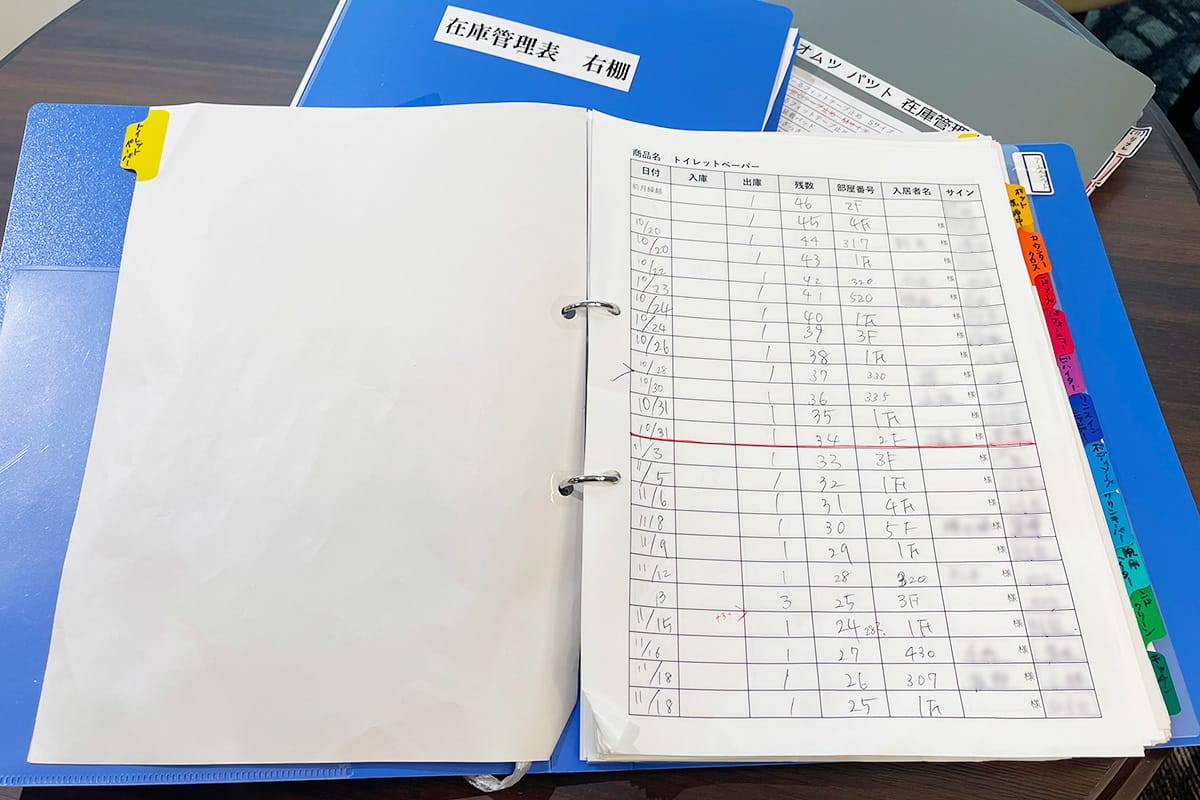 在庫管理表 右棚
オムツ パット 在庫管理
トイレットペーパー
商品名 トイレットペーパー
日付 入庫 出庫 残数 部屋番号 入居者名 サイン
前月繰越 1 46 2F
10/20 1 45 4F 様
10/20 1 44 317
10/22 1 43 1F 様
10/23 1 42 320
10/24 1 41 520 様
10/24 1 40 1F
10/26 1 39 3F 様
10/28 1 38 1F 様
10/30 1 37 330
10/31 1 36 335 様
10/31 1 35 1F
1 34 2F 様
11/3 1 33 3F
11/5 1 32 1F 様
11/6 1 31 4F 様
11/8 1 30 5F 様
11/9 1 29 1F 様
11/12 1 28 320 様
13 3 25 3F 様
11/15 1 24 28 1F 様
11/16 1 27 430 様
11/18 1 26 307 様
11/18 1 25 1F 様
カウンタークロス